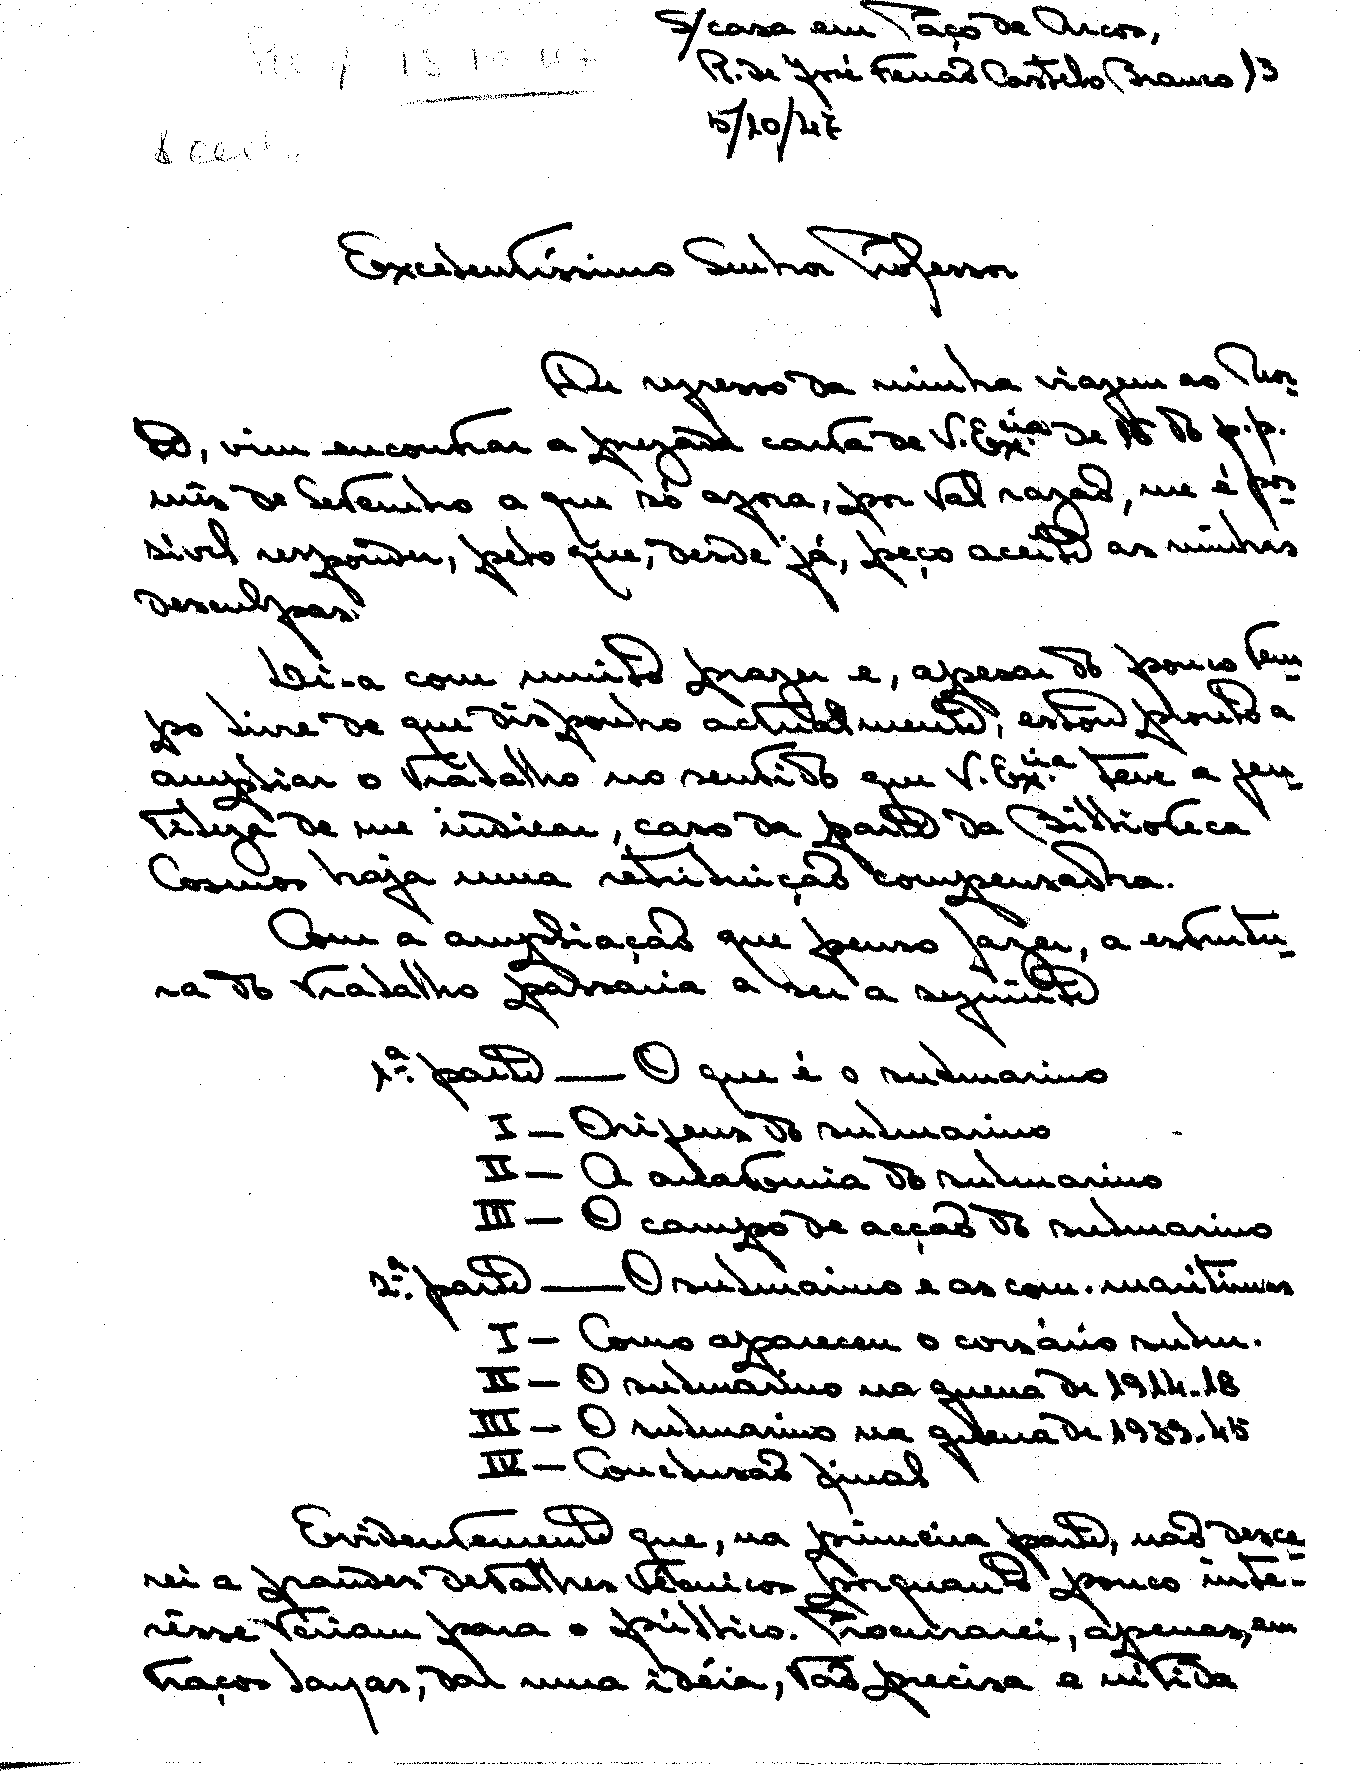 S/casa em Paço de Arcos,
R. de José Ferrão Castelo Branco 13
5/10/47
Excelentíssimo Senhor Professor
De regresso da minha viagem ao Nor-
te, vim encontrar a prezada carta de V. Ex.ª de 16 do p.p.
mês de Setembro a que só agora, por tal razão, me é pos-
sível responder, pelo que, desde já, peço aceite as minhas
desculpas.
Li-a com muito prazer e, apesar do pouco tem-
po livre de que disponho actualmente, estou pronto a
ampliar o trabalho no sentido que V. Ex.ª teve a gen-
tileza de me indicar, caso da parte da Biblioteca
Cosmos haja uma retribuição compensadora.
Com a ampliação que penso fazer, a estrutu-
ra do trabalho passaria a ser a seguinte
1.ª parte — O que é o submarino
I — Origens do submarino
II — A anatomia do submarino
III — O campo de acção do submarino
2.ª parte — O submarino e as com. marítimas
I — Como apareceu o corsário subm.
II — O submarino na guerra de 1914-18
III — O submarino na guerra de 1939-45
IV — Conclusão final
Evidentemente que, na primeira parte, não desce-
rei a grandes detalhes técnicos porquanto pouco inte-
rêsse teriam para o público. Procurarei, apenas, em
traços largos, dar uma idéia, tão precisa e nítida